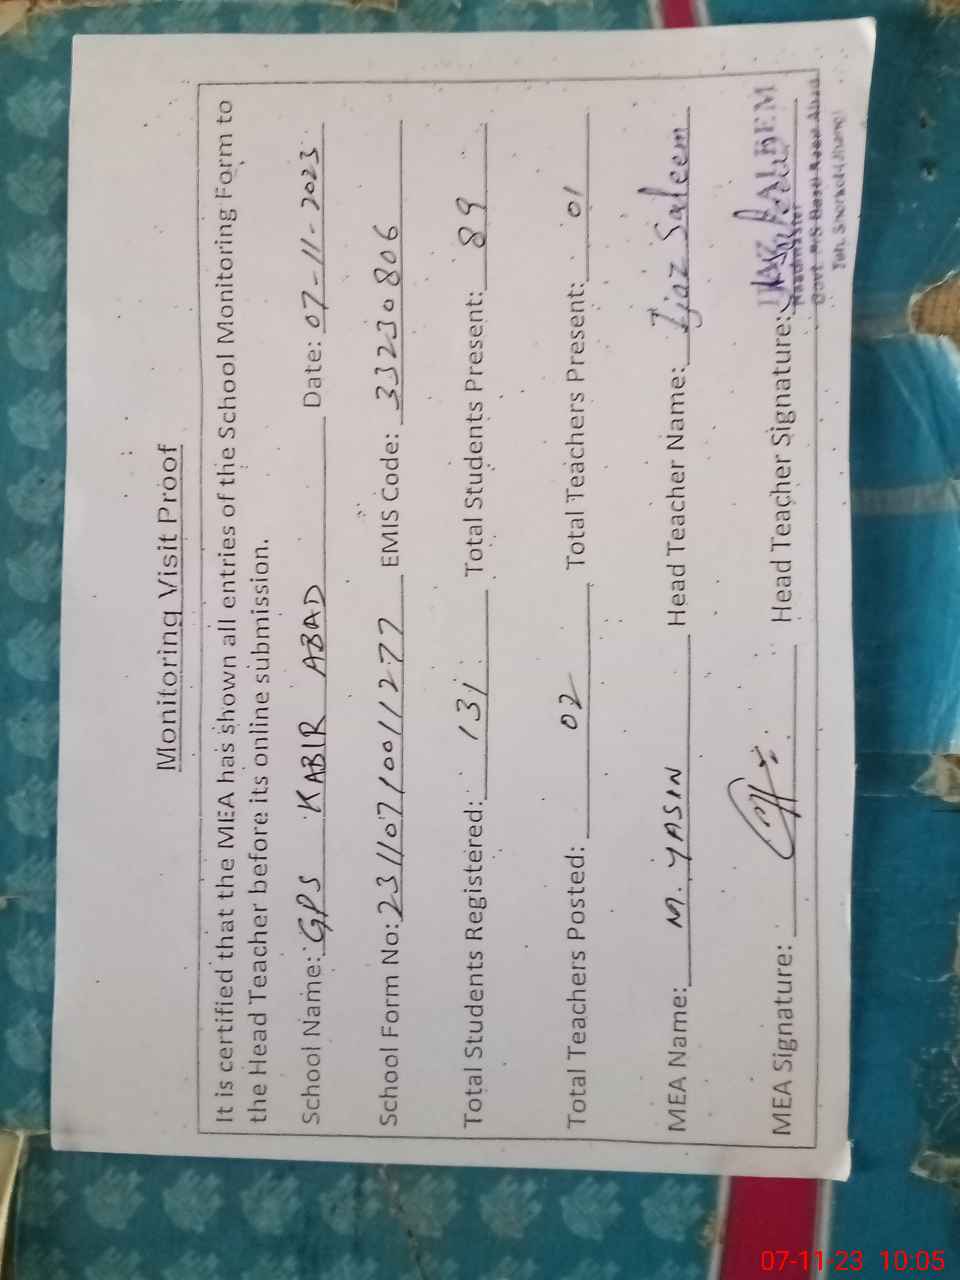 Monitoring Visit Proof
It is certified that the MEA has shown all entries of the School Monitoring Form to
the Head Teacher before its online submission.
School Name: GPS KABIR ABAD Date: 07-11-2023
School Form No: 23110710011277 EMIS Code: 33230806
Total Students Registered: 131 Total Students Present: 89
Total Teachers Posted: 02 Total Teachers Present: 01
MEA Name: M. YASIN Head Teacher Name: Ijaz Saleem
MEA Signature: Head Teacher Signature:
IJAZ SALEEM
Headmaster
Govt.
07-11-23 10:05